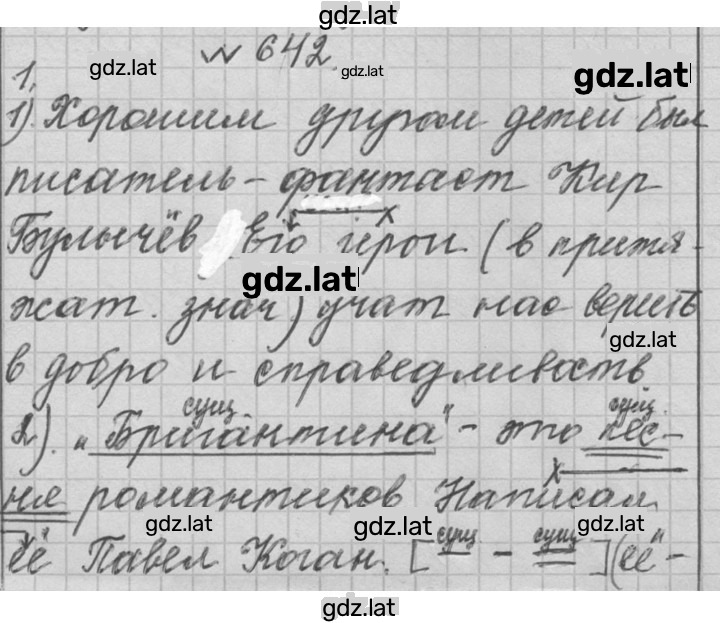 gdz.lat
№ 642.
gdz.lat
gdz.lat
gdz.lat
1.
1). Хорошим другом детей был
писатель - фантаст Кир
Булычёв Его герои (в притя-
gdz.lat
жат. знач) учат нас верить
gdz.lat
в добро и справедливость
сущ. сущ.
2). „Бригантина" - это пес-
ня романтиков Написал
gdz.lat gdz.lat gdz.lat
её Павел Коган. [сущ. - сущ.] („ее" -
gdz.lat